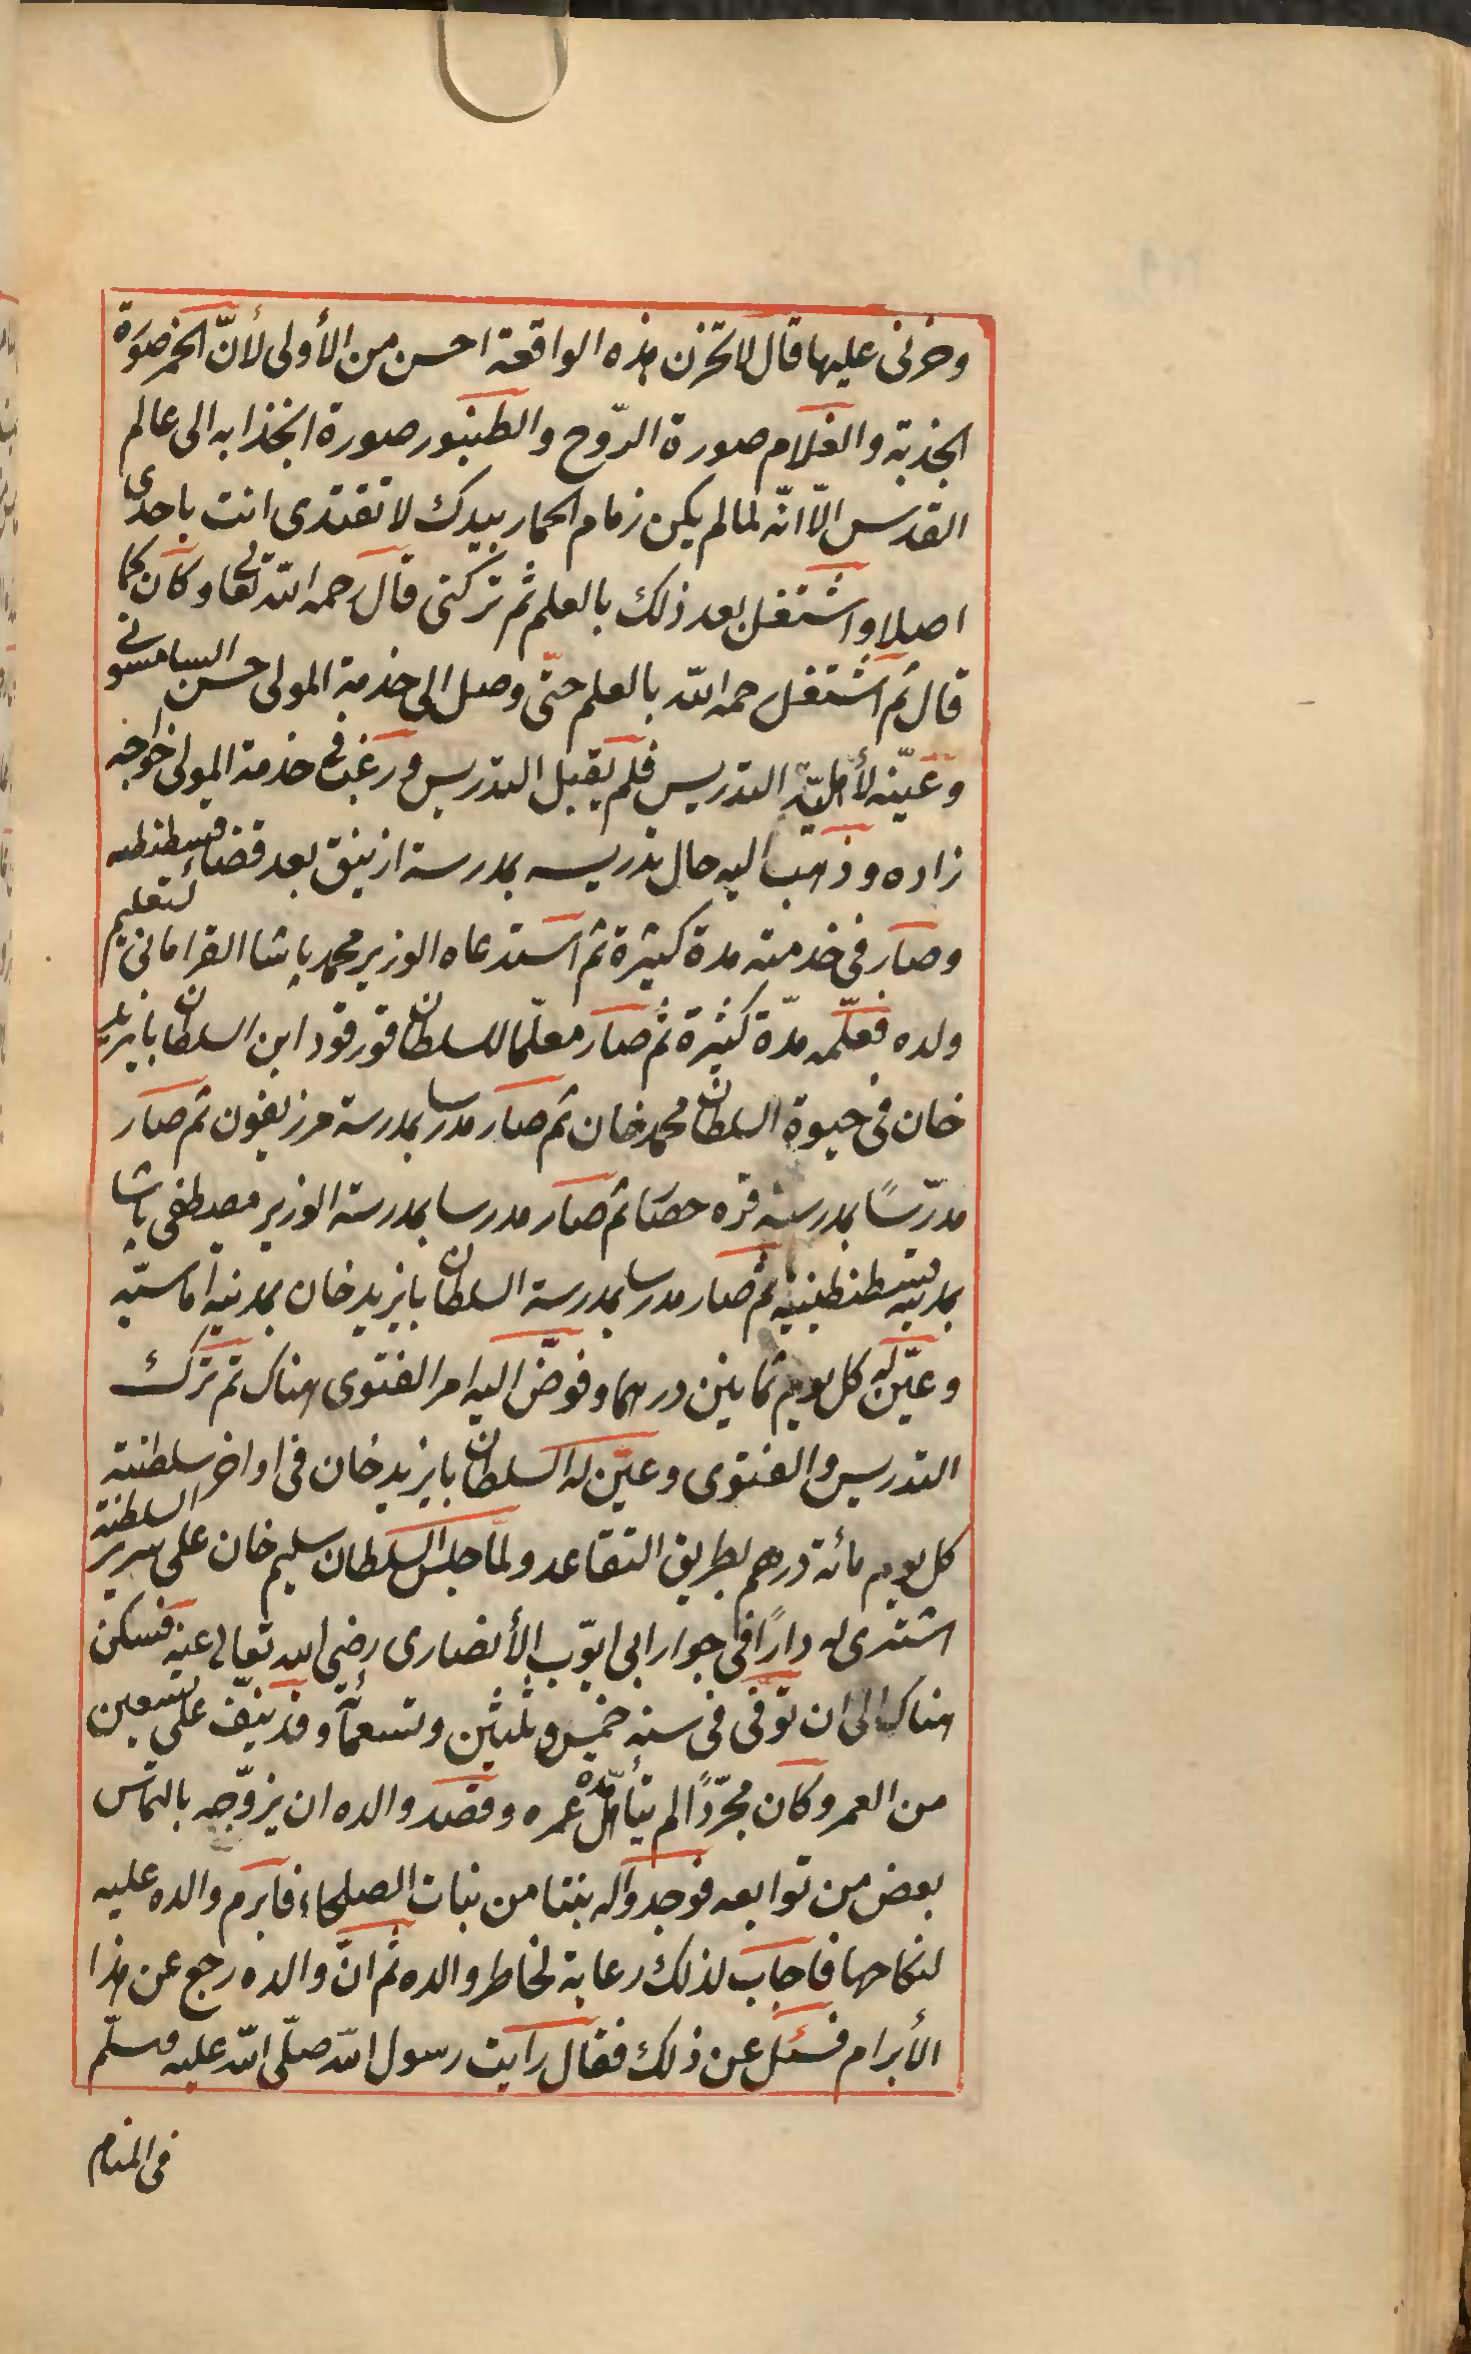 وحزنى عليها قال لا تحزن هذه الواقعة احسن من الأولى لأنّ الخمر صورة
الجذبة والغلام صورة الرّوح والطنبور صورة انجذابه الى عالم
القدس الّا انّه لما لم يكن زمام الحمار بيدك لا تقتدى انت باحدى
اصلا واشتغل بعد ذلك بالعلم ثم تركنى قال رحمه الله تعالى وكان كما
قال ثم اشتغل رحمه الله بالعلم حتّى وصل الى خدمة المولى حسن السامسونى
وعيّنه لأهليّة التدريس فلم يقبل التدريس ورغب فى خدمة المولى خواجه
زاده وذهب اليه حال تدريسه بمدرسة ازنيق بعد قضاء قسطنطينيه
وصار فى خدمته مدة كثيرة ثم استدعاه الوزير محمد پاشا القرامانى لتعليم
ولده فعلّمه مدّة كثيرة ثم صار معلّما للسلطان قورقود ابن السلطان بايزيد
خان فى حيوة السلطان محمد خان ثم صار مدرسا بمدرسة مرزيفون ثم صار
مدرّسًا بمدرسة قره حصار ثم صار مدرسا بمدرسة الوزير مصطفى پاشا
بمدينة قسطنطينية ثم صار مدرسا بمدرسة السلطان بايزيد خان بمدينة أماسيّه
وعيّن له كل يوم ثمانين درهما وفوّض اليه امر الفتوى هناك ثم ترك
التدريس والفتوى وعيّن له السلطان بايزيد خان فى اواخر سلطنته
كل يوم مائة درهم بطريق التقاعد ولمّا جلس السلطان سليم خان على سرير السلطنة
اشترى له دارًا فى جوار ابى ايّوب الأنصارى رضى الله تعالى عنه فسكن
هناك الى ان توفى فى سنة خمس وثلثين وتسعمائة وقد نيّف على تسعين
من العمر وكان مجرّدًا لم يتأهّل مدّة عمره وقصد والده ان يزوّجه بالتماس
بعض من توابعه فوجدوا له بنتا من بنات الصلحاء فابرم والده عليه
لنكاحها فاجاب لذلك رعاية لخاطر والده ثم انّ والده رجع عن هذا
الأبرام فسئل عن ذلك فقال رايت رسول الله صلّى الله عليه وسلّم
فى المنام